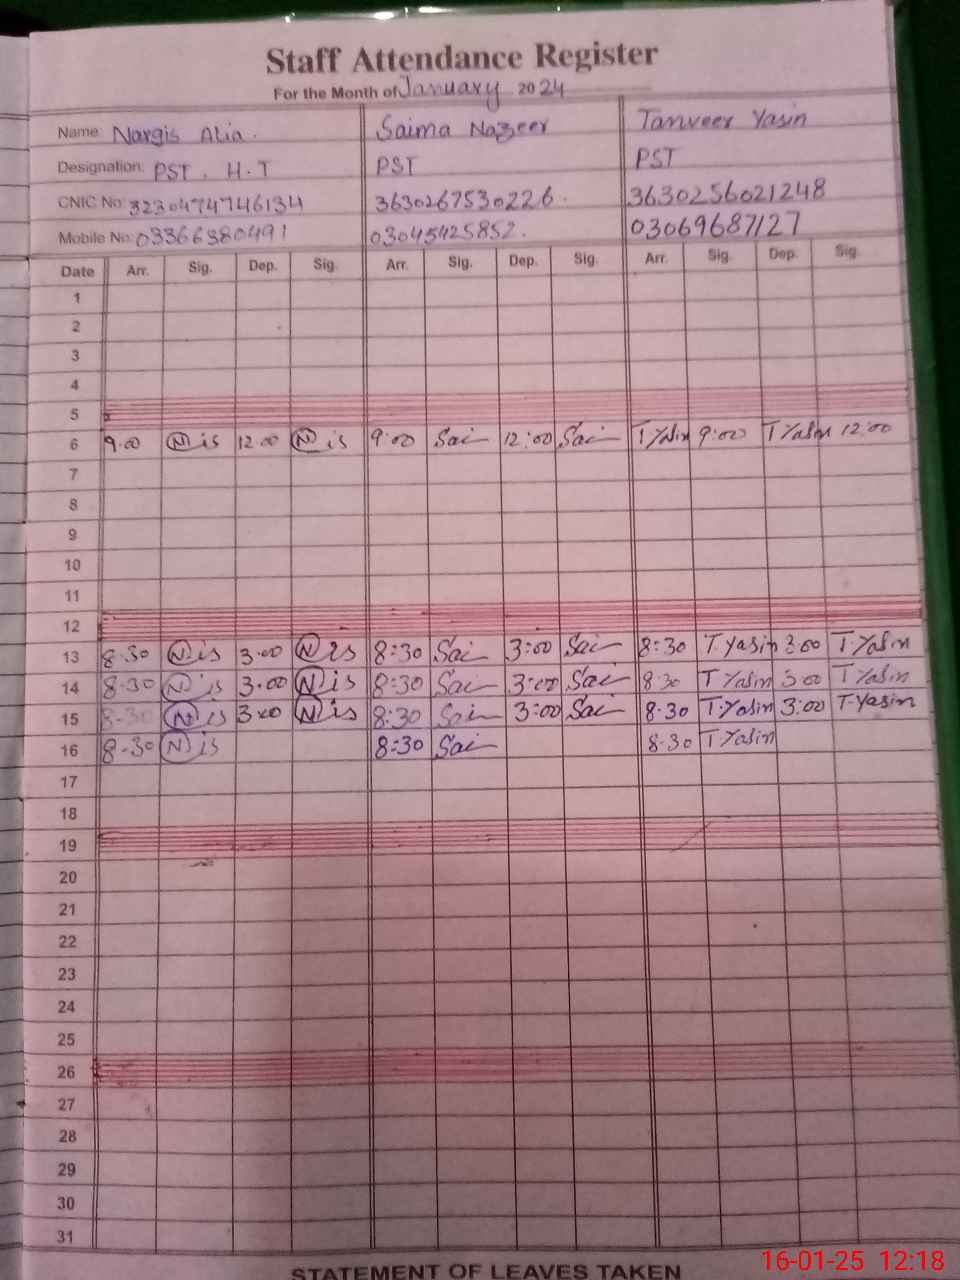 Staff Attendance Register
For the Month of January 2024
Name: Nargis Alia. Saima Nazeer Tanveer Yasin
Designation: PST . H.T PST PST
CNIC No: 3230474746134 3630267530226. 3630256021248
Mobile No: 03366380491 03045425852. 03069687127
Date Arr. Sig. Dep. Sig. Arr. Sig. Dep. Sig. Arr. Sig. Dep. Sig.
1
2
3
4
5
6 9.00 N is 12.00 N is 9:00 Sai 12:00 Sai T Yasin 9:00 T Yasin 12:00
7
8
9
10
11
12
13 8.30 N is 3.00 N is 8:30 Sai 3:00 Sai 8:30 T.Yasin 3:00 T.Yasin
14 8.30 N is 3.00 N is 8:30 Sai 3:00 Sai 8:30 T Yasin 3:00 T.Yasin
15 8-30 N is 3.00 N is 8:30 Sai 3:00 Sai 8.30 T.Yasin 3:00 T.Yasin
16 8-30 N is 8:30 Sai 8.30 T.Yasin
17
18
19
20
21
22
23
24
25
26
27
28
29
30
31
STATEMENT OF LEAVES TAKEN
16-01-25 12:18